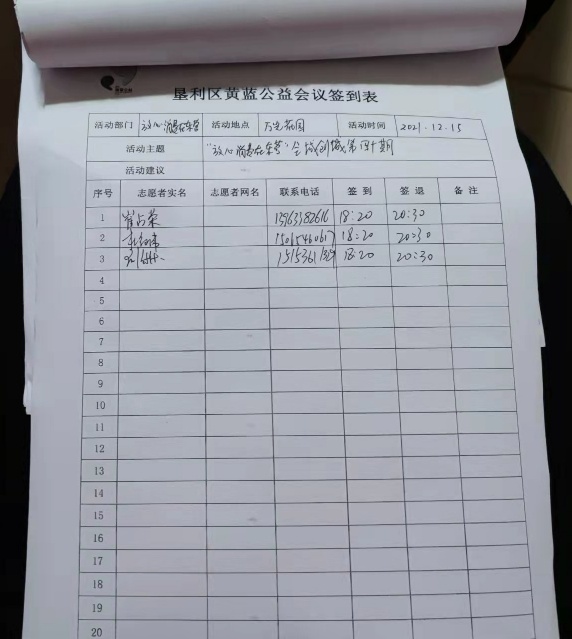 垦利区黄蓝公益会议签到表
活动部门 放心消费在东营 活动地点 万光花园 活动时间 2021.12.15
活动主题 "放心消费在东营"全城创城第四十期
活动建议
序号 志愿者实名 志愿者网名 联系电话 签到 签退 备注
1 崔占荣 18:20 20:30
2 18:20 20:30
3 18:20 20:30
4
5
6
7
8
9
10
11
12
13
14
15
16
17
18
19
20